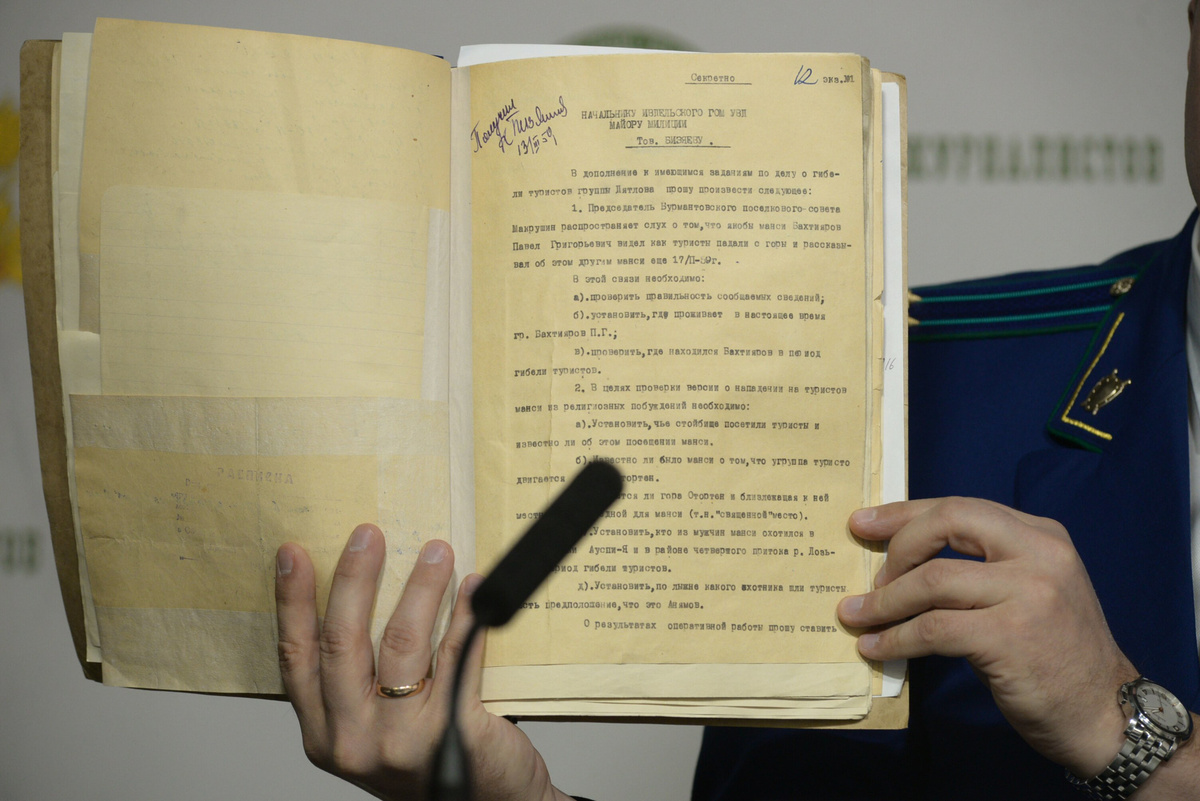 Секретно
12 экз.№1
Получил
13/III-59
НАЧАЛЬНИКУ ИВДЕЛЬСКОГО ГОМ УВД
МАЙОРУ МИЛИЦИИ
Тов. БИЗЯЕВУ.
В дополнение к имеющимся заданиям по делу о гибе-
ли туристов группы Дятлова прошу произвести следующее:
1. Председатель Бурмантовского поселкового совета
Мокрушин распространяет слух о том,что якобы манси Бахтияров
Павел Григорьевич видел как туристы падали с горы и рассказы-
вал об этом другим манси еще 17/П-59г.
В этой связи необходимо:
а).проверить правильность сообщаемых сведений;
б).установить,где проживает в настоящее время
гр. Бахтияров П.Г.;
в).проверить,где находился Бахтияров в период
гибели туристов.
2. В целях проверки версии о нападении на туристов
манси из религиозных побуждений необходимо:
а).Установить,чье стойбище посетили туристы и
известно ли об этом посещении манси.
б).Известно ли было манси о том,что угруппа туристо
двигается тортен.
ется ли гора Отортен и близлежащая к ней
местн дной для манси (т.н."священной"место).
.Установить,кто из мужчин манси охотился в
и Ауспи-Я и в районе четвертого притока р. Лозь-
риод гибели туристов.
д).Установить,по лыжне какого охотника шли туристы
сть предположение,что это Анямов.
О результатах оперативной работы прошу ставить
ЖУРНАЛИСТОВ
ТОВ